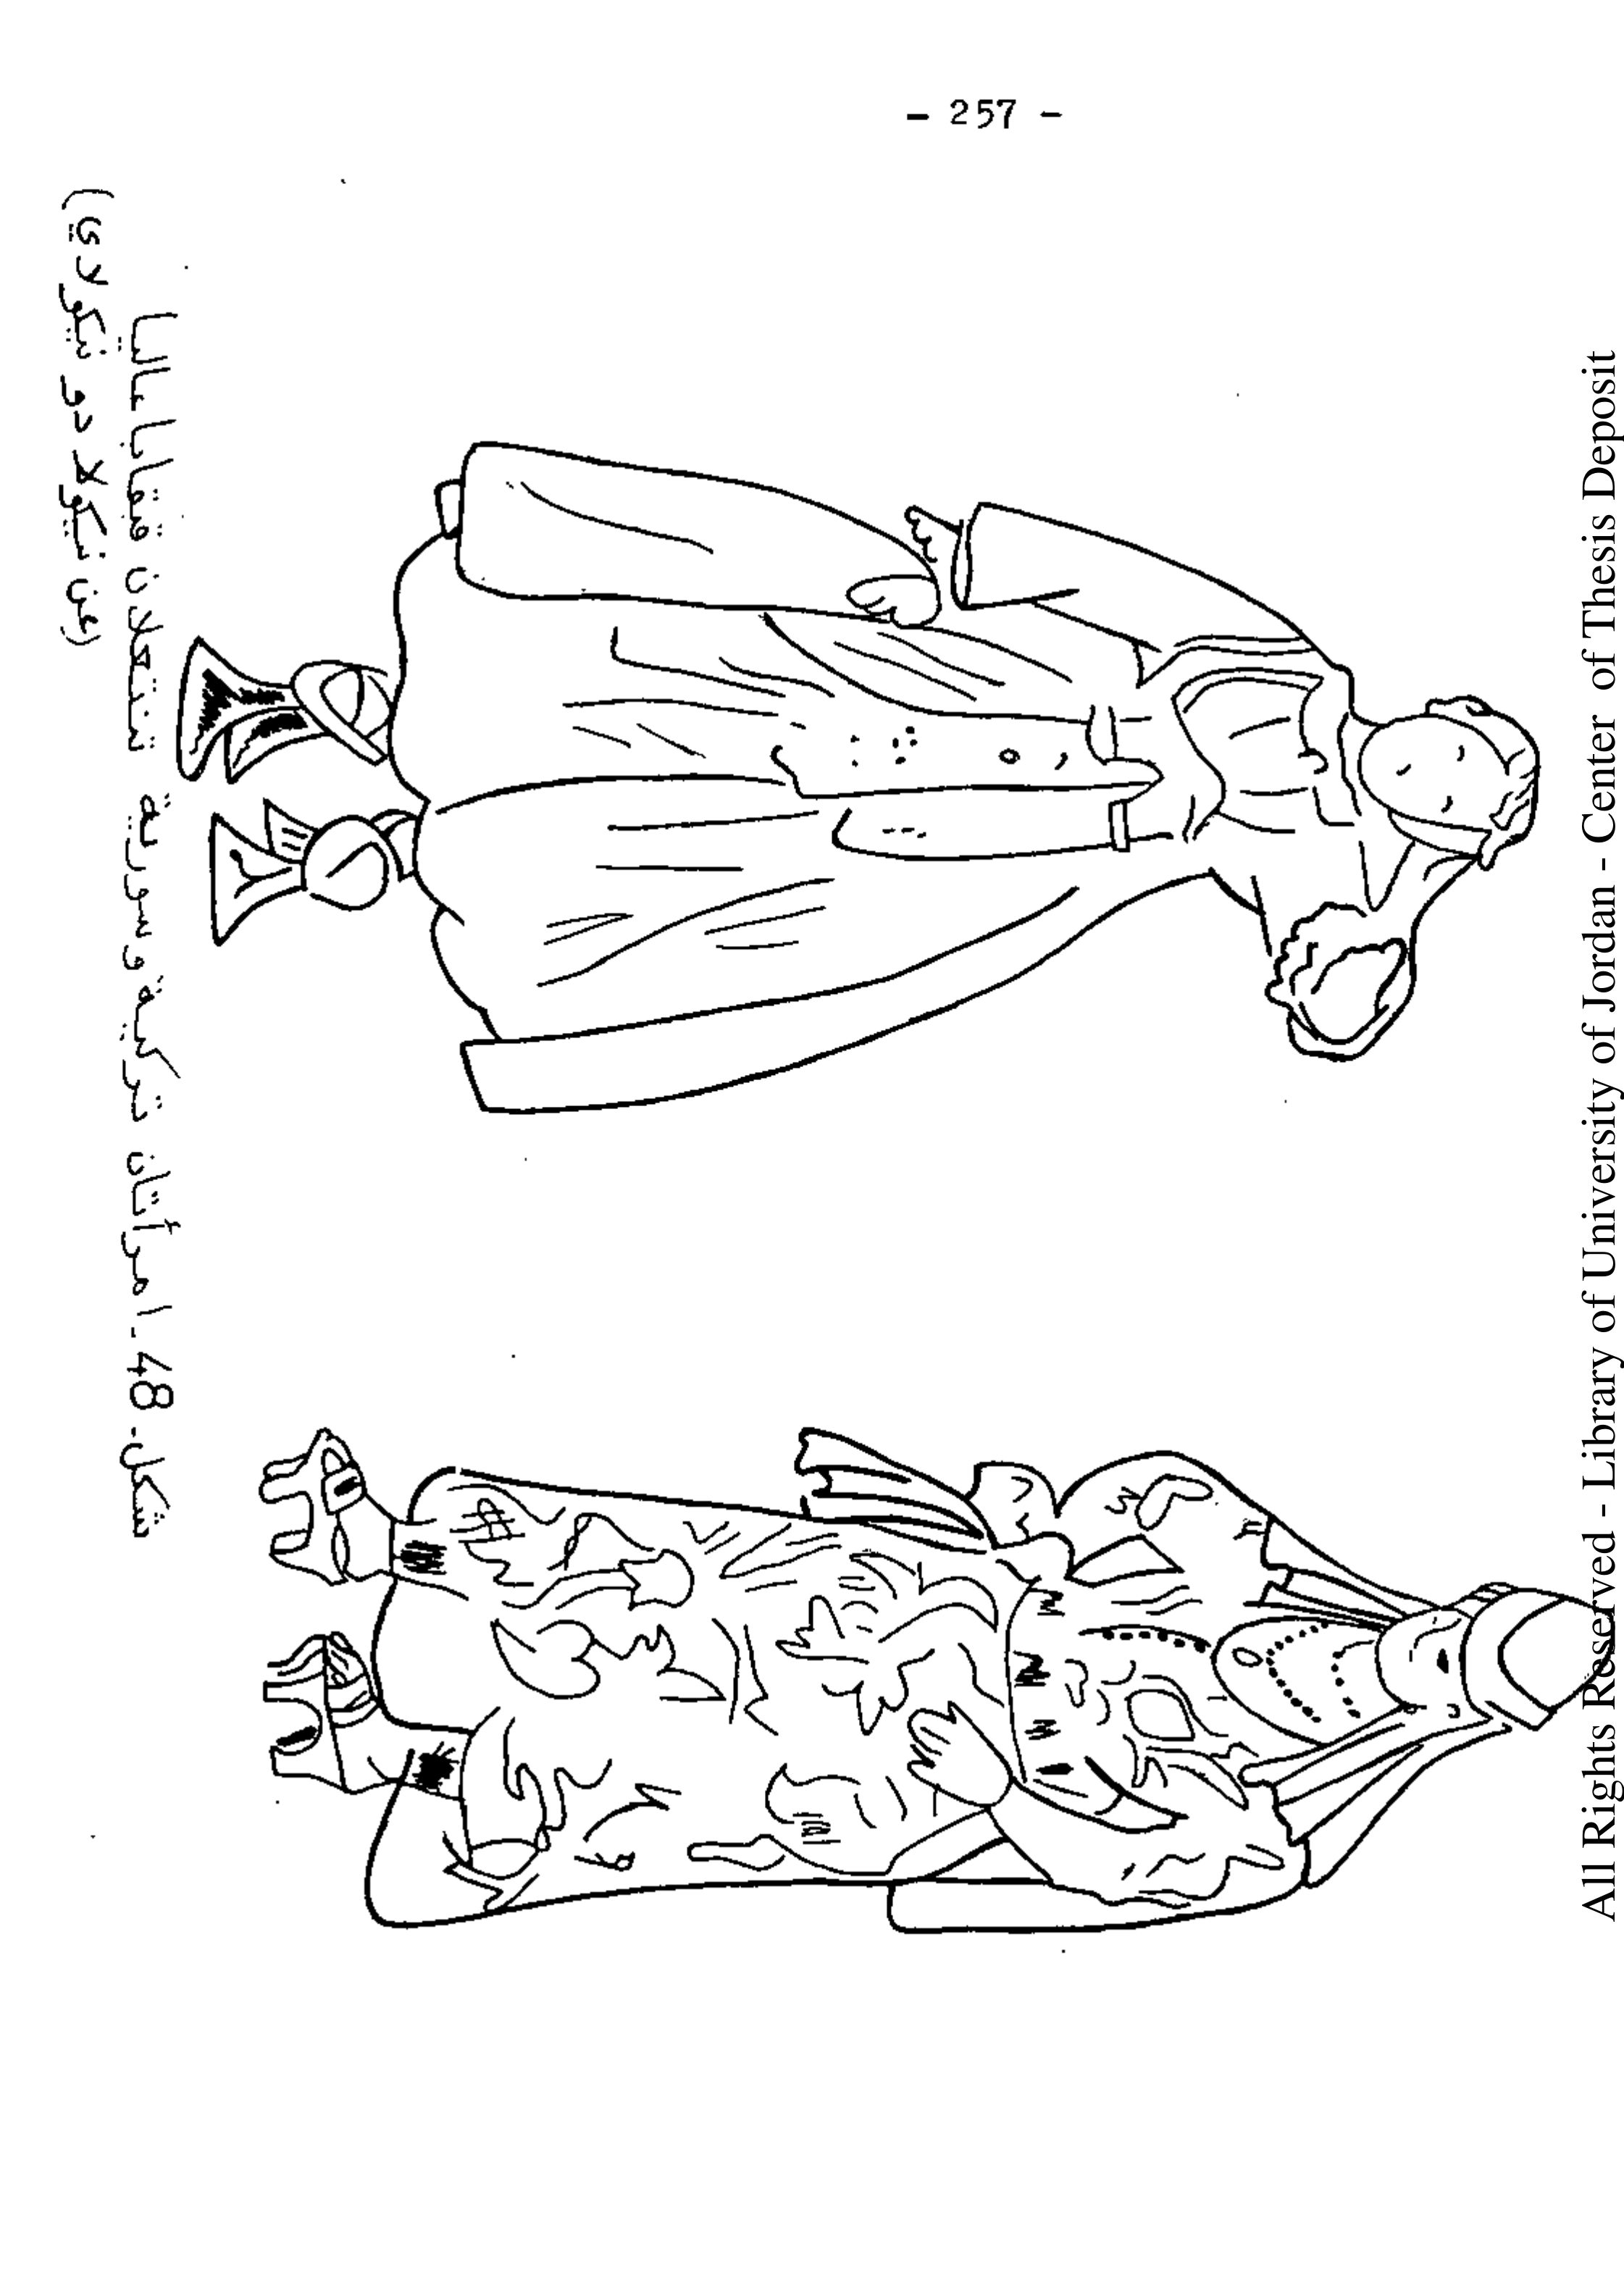 - 257 -
شكل. 48 ـ امرأتان تركية وسورية تنتعلان قبقابا عاليا
(عن نيكولا دو نيكولاي)
All Rights Reserved - Library of University of Jordan - Center of Thesis Deposit